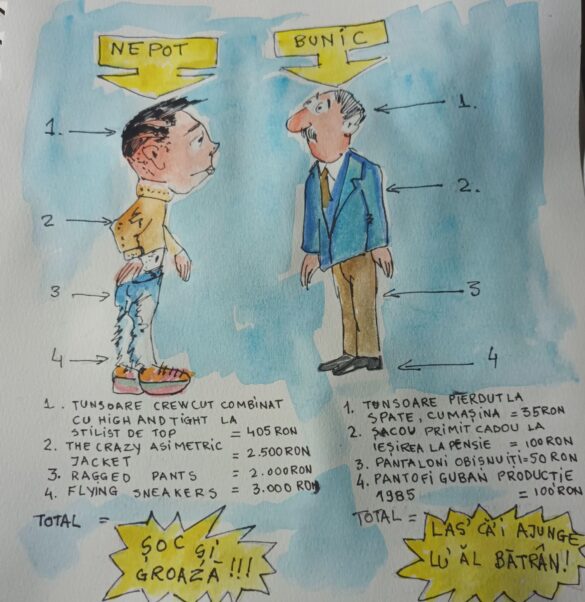 NEPOT
BUNIC
1.
1.
2
2.
3
3
4
4
1. TUNSOARE CREWCUT COMBINAT
CU HIGH AND TIGHT LA
STILIST DE TOP = 405 RON
2. THE CRAZY ASIMETRIC
JACKET = 2.500 RON
3. RAGGED PANTS = 2.000 RON
4. FLYING SNEAKERS = 3.000 RON
TOTAL =
ȘOC ȘI
GROAZĂ!!!
1. TUNSOARE PIERDUT LA
SPATE, CU MAȘINA = 35 RON
2. SACOU PRIMIT CADOU LA
IEȘIREA LA PENSIE = 100 RON
3. PANTALONI OBIȘNUIȚI = 50 RON
4. PANTOFI GUBAN PRODUCTIE
1985 = 100 RON
TOTAL =
LAS' CĂ'I AJUNGE
LU' ĂL BĂTRÂN!